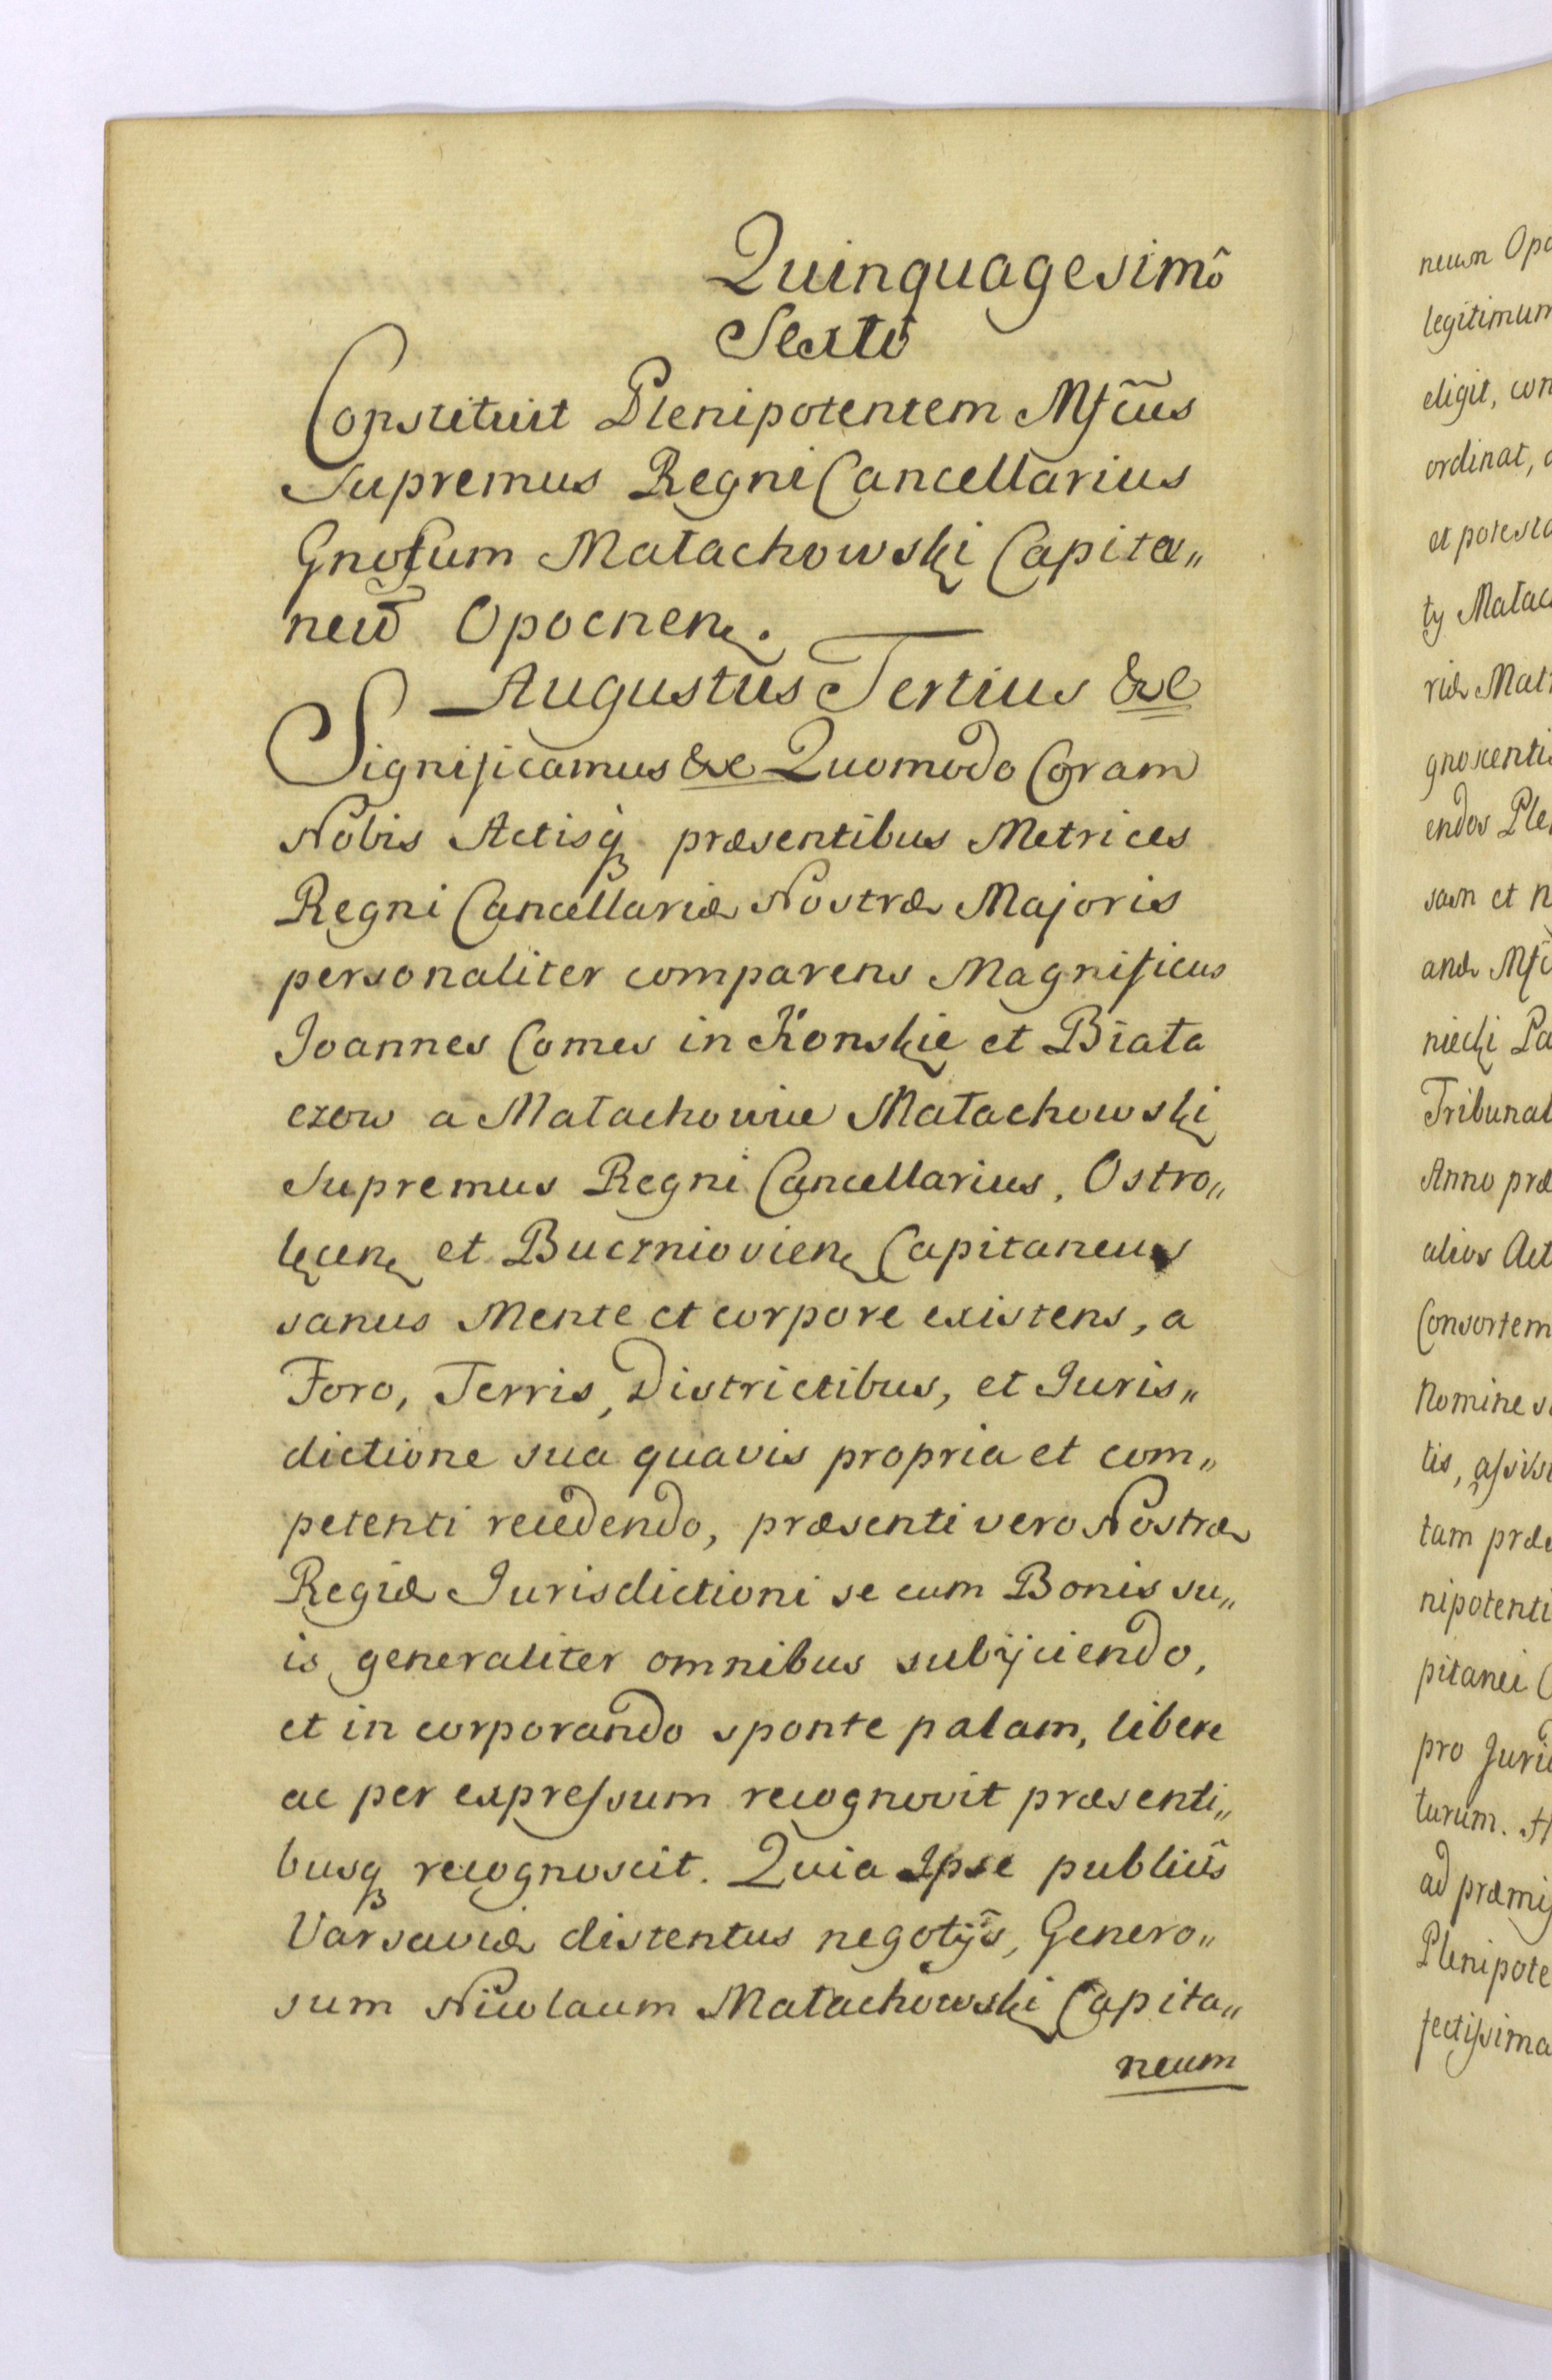 Quinquagesimô
Sextô
Constituit Plenipotentem Mfc̃us
Supremus Regni Cancellarius
Gnosum Małachowski Capita„
neũ Opocnen.
Augustus Tertius &c
Significamus &c Quomodo Coram
Nobis Actisq. præsentibus Metrices
Regni Cancellariæ Nostræ Majoris
personaliter comparens Magnificus
Joannes Comes in Konskie et Biała
czow a Małachowice Małachowski
Supremus Regni Cancellarius, Ostro„
lęcen et Buczniovien Capitaneus
sanus Mente et corpore existens, a
Foro, Terris, Districtibus, et Juris„
dictione sua quavis propria et com„
petenti recedendo, præsenti vero Nostræ
Regiæ Jurisdictioni se cum Bonis su„
is generaliter omnibus subijciendo,
et in corporando sponte palam, libere
ac per expressum recognovit præsenti„
busq recognoscit. Quia Ipse publicis
Varsaviæ distentus negotijs, Genero„
sum Nicolaum Małachowski Capita„
neum
neum Opo
legitimum
eligit, con
ordinat,
et potesta
ty Małac
riæ Mat
gnoscentis
endos Ple
sam et n
anæ Mfc
niecki Pa
Tribunal
Anno præ
alios Act
Consortem
Nomine s
tis, assis
tam præ
nipotenti
pitanei
pro Juri
turum.
ad præmis
Plenipote
fectissima